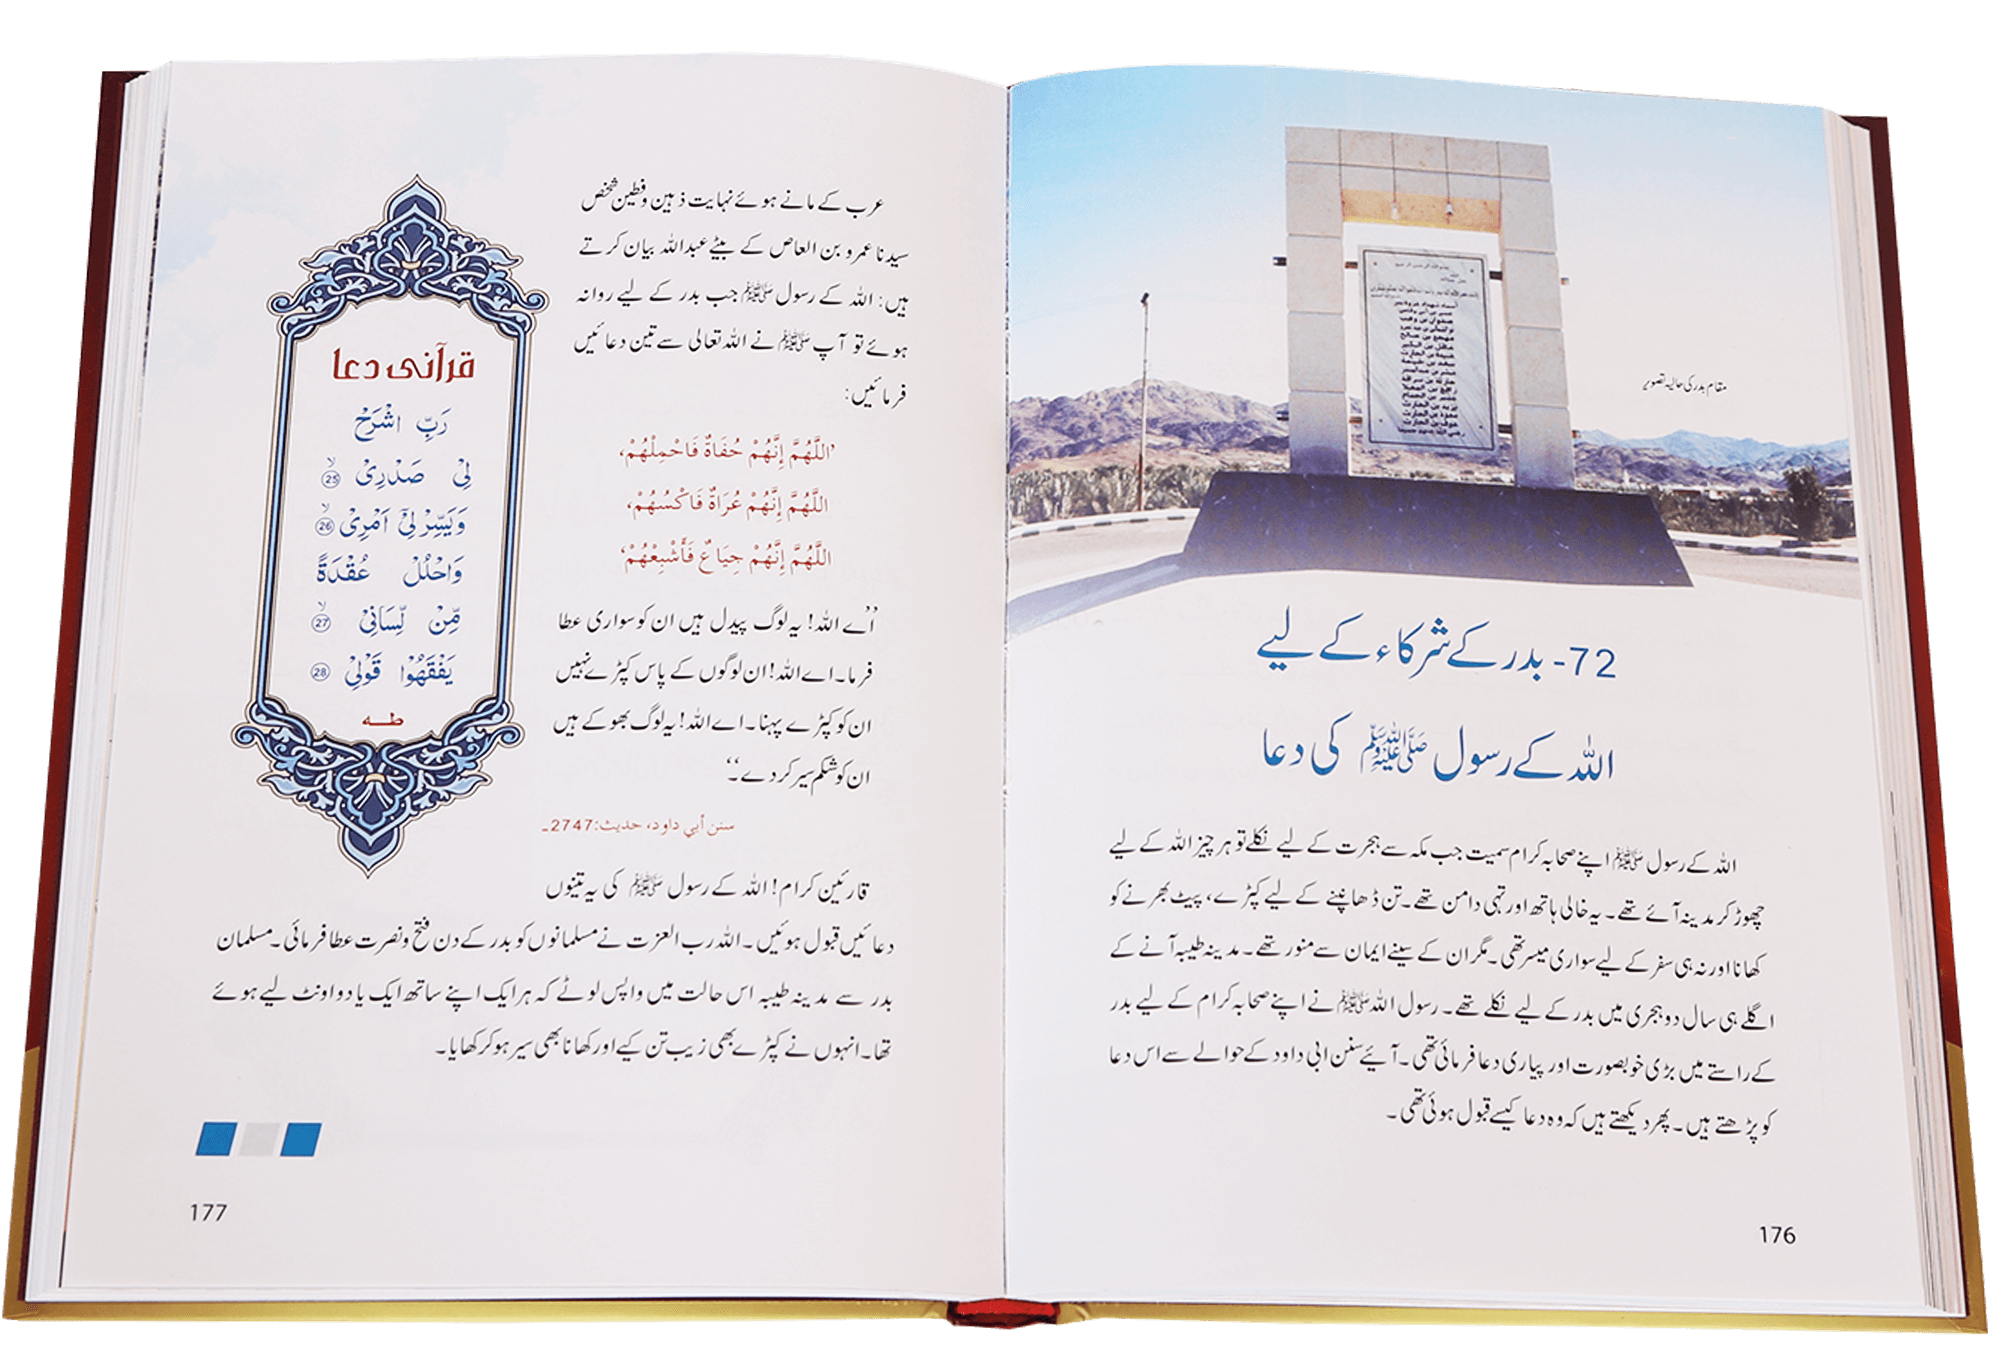 مقام بدر کی حالیہ تصویر
72- بدر کے شرکاء کے لیے
اللہ کے رسول ﷺ کی دعا
اللہ کے رسول ﷺ اپنے صحابہ کرام سمیت جب مکہ سے ہجرت کے لیے نکلے تو ہر چیز اللہ کے لیے
چھوڑ کر مدینہ آئے تھے۔ یہ خالی ہاتھ اور تہی دامن تھے۔ تن ڈھانپنے کے لیے کپڑے، پیٹ بھرنے کو
کھانا اور نہ ہی سفر کے لیے سواری میسر تھی۔ مگر ان کے سینے ایمان سے منور تھے۔ مدینہ طیبہ آنے کے
اگلے ہی سال دو ہجری میں بدر کے لیے نکلے تھے۔ رسول اللہ ﷺ نے اپنے صحابہ کرام کے لیے بدر
کے راستے میں بڑی خوبصورت اور پیاری دعا فرمائی تھی۔ آئیے سنن ابی داود کے حوالے سے اس دعا
کو پڑھتے ہیں۔ پھر دیکھتے ہیں کہ وہ دعا کیسے قبول ہوئی تھی۔
176
عرب کے مانے ہوئے نہایت ذہین و فطین شخص
سیدنا عمرو بن العاص کے بیٹے عبداللہ بیان کرتے
ہیں: اللہ کے رسول ﷺ جب بدر کے لیے روانہ
ہوئے تو آپ ﷺ نے اللہ تعالی سے تین دعائیں
فرمائیں:
’اللَّهُمَّ إِنَّهُمْ حُفَاةٌ فَاحْمِلْهُمْ،
اللَّهُمَّ إِنَّهُمْ عُرَاةٌ فَاكْسُهُمْ،
اللَّهُمَّ إِنَّهُمْ جِيَاعٌ فَأَشْبِعْهُمْ‘
’’اے اللہ! یہ لوگ پیدل ہیں ان کو سواری عطا
فرما۔ اے اللہ! ان لوگوں کے پاس کپڑے نہیں
ان کو کپڑے پہنا۔ اے اللہ! یہ لوگ بھوکے ہیں
ان کو شکم سیر کر دے۔‘‘
سنن أبي داود، حديث:2747۔
قارئین کرام! اللہ کے رسول ﷺ کی یہ تینوں
دعائیں قبول ہوئیں۔ اللہ رب العزت نے مسلمانوں کو بدر کے دن فتح و نصرت عطا فرمائی۔ مسلمان
بدر سے مدینہ طیبہ اس حالت میں واپس لوٹے کہ ہر ایک اپنے ساتھ ایک یا دو اونٹ لیے ہوئے
تھا۔ انہوں نے کپڑے بھی زیب تن کیے اور کھانا بھی سیر ہو کر کھایا۔
قرآنی دعا
رَبِّ اشْرَحْ
لِیْ صَدْرِیْ ۙ25
وَیَسِّرْ لِیْۤ اَمْرِیْ ۙ26
وَاحْلُلْ عُقْدَةً
مِّنْ لِّسَانِیْ ۙ27
یَفْقَهُوْا قَوْلِیْ 28
طـــه
177